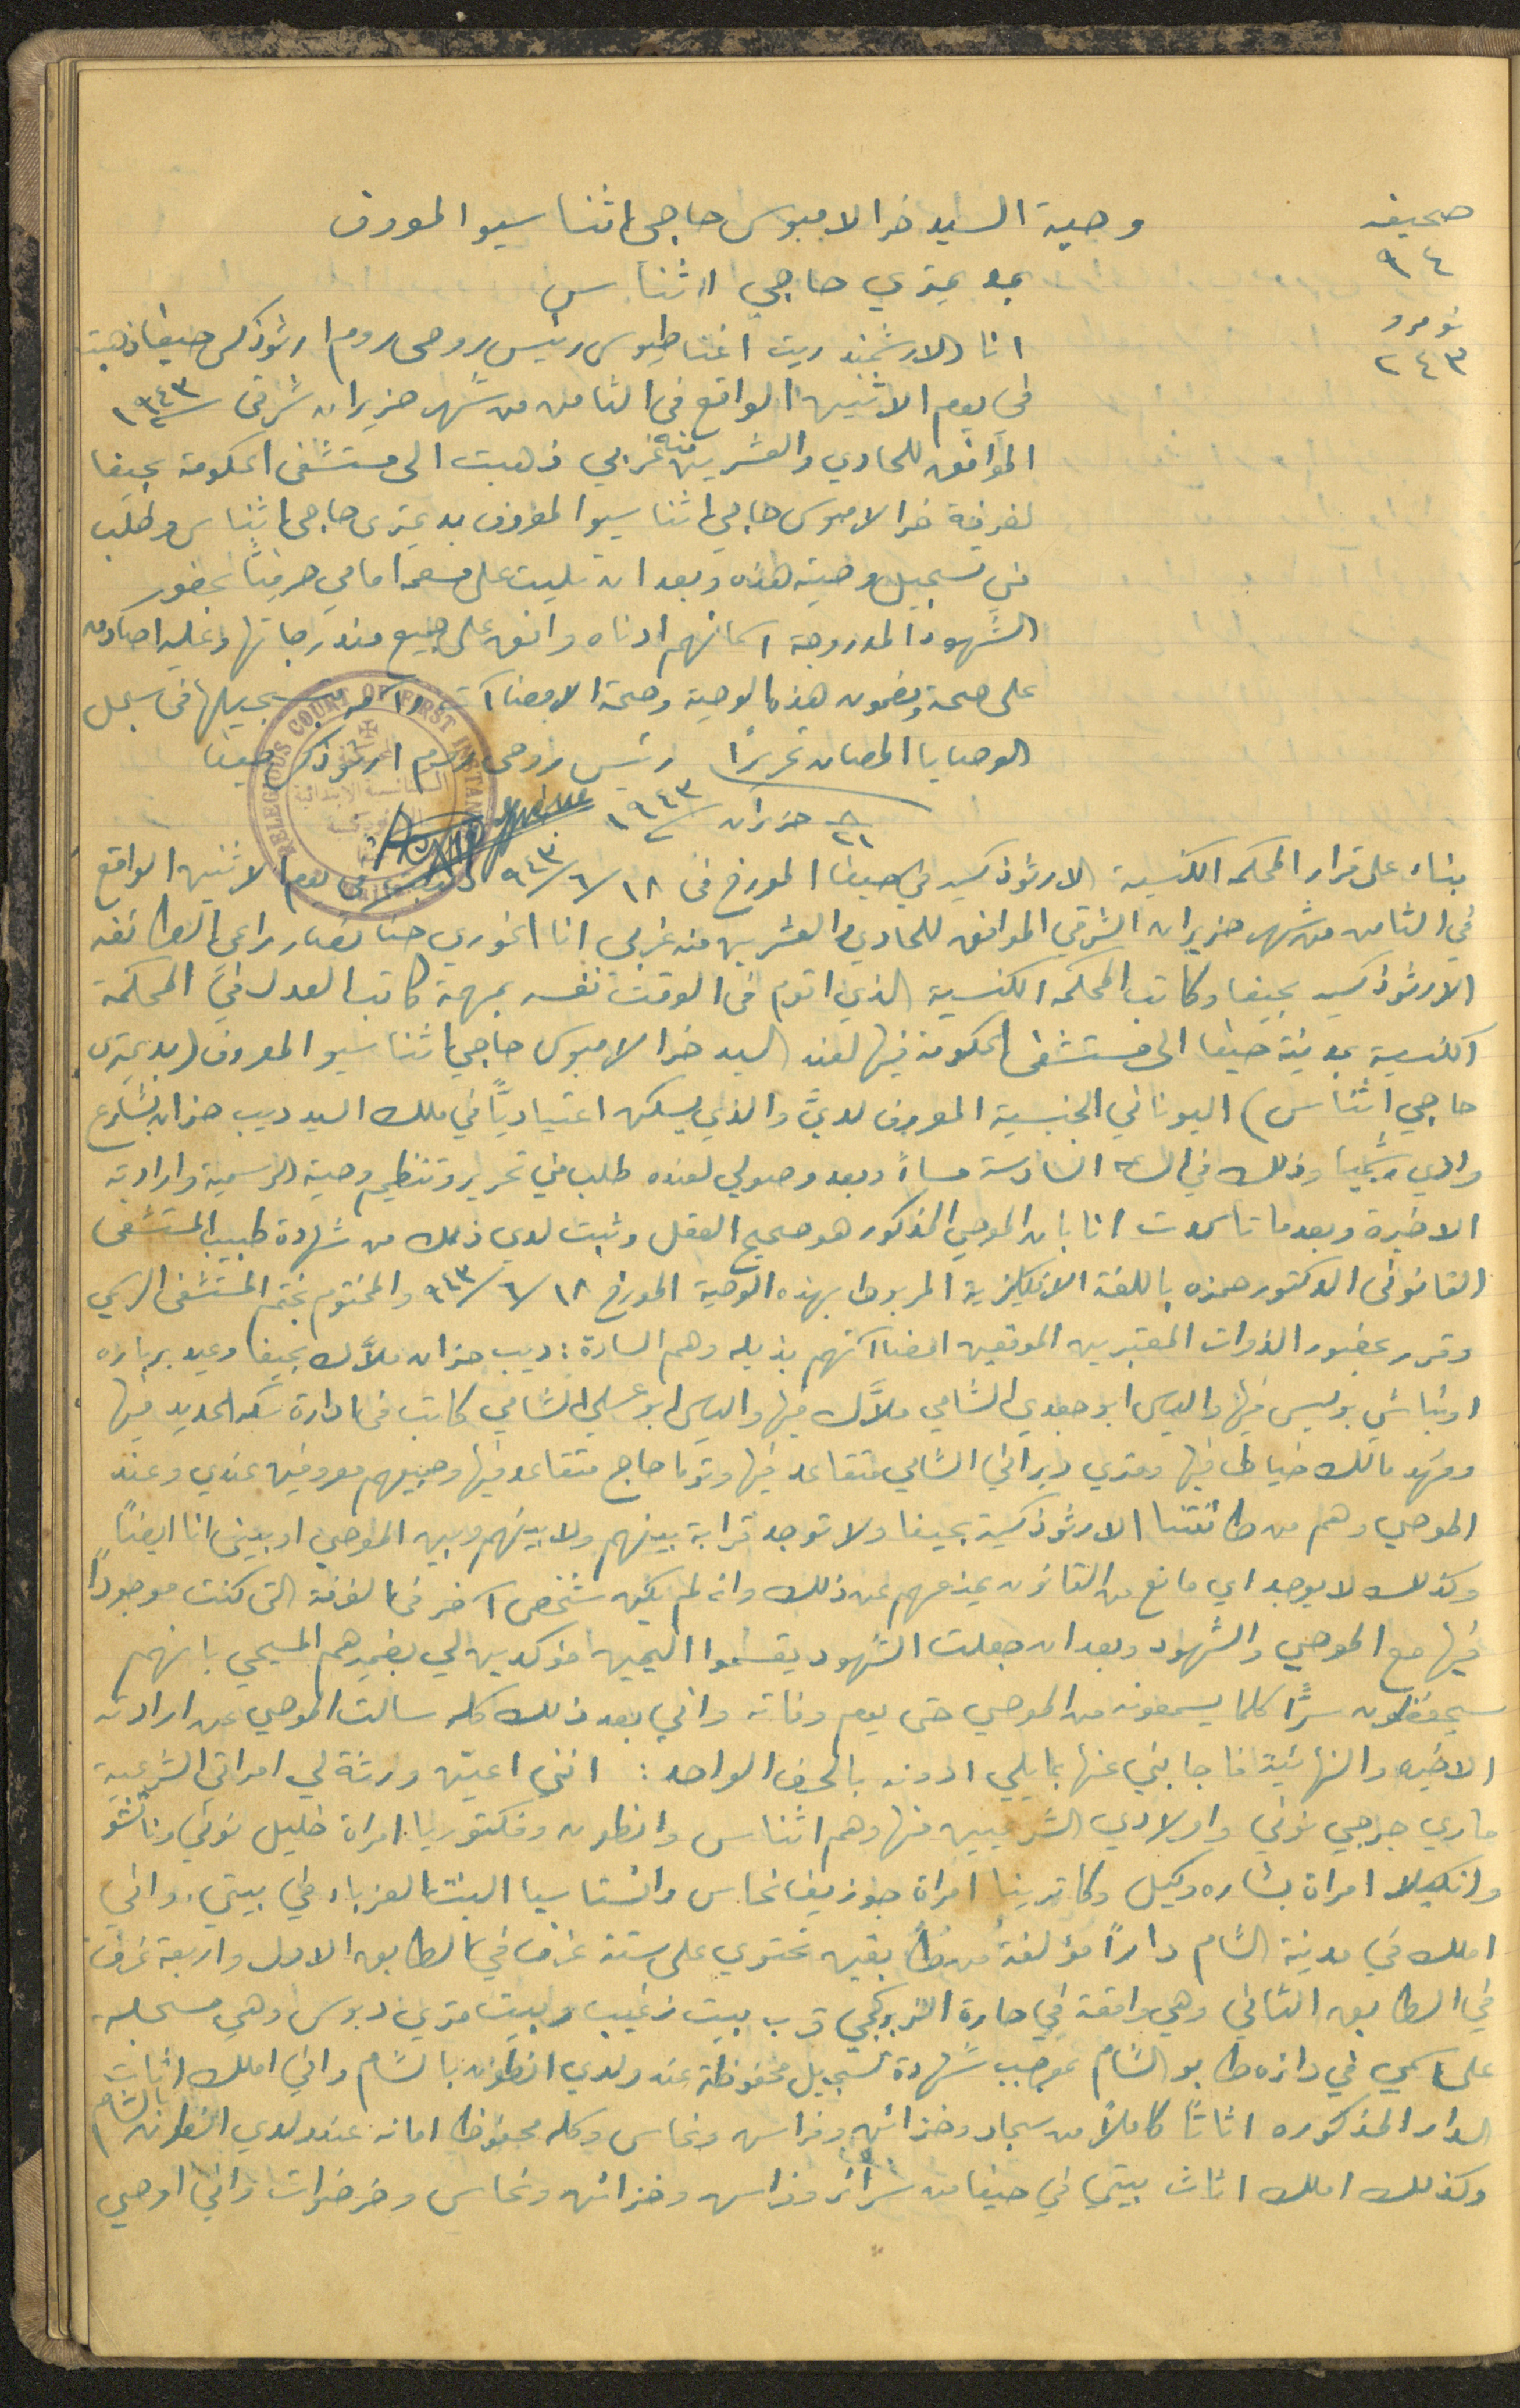 صحيفه
٩٤
نومرو
٢٤٣
وصية السيد خرالامبوس حاجي اثناسيو المعروف
بديمتري حاجي اثناس
انا الارشمندريت اغناطيوس رئيس روحي روم ارثوذكس حيفا ذهبت
في يوم الاثنين الواقع في الثامن من شهر حزيران شرقي سنة ١٩٤٣
الموافق للحادي والعشرين منه غربي ذهبت الى مستشفى الحكومة بحيفا
لغرفة خرالامبوس حاجي اثناسيو المعروف بديمتري حاجي اثناس وطلب
مني تسجيل وصيته هذه وبعد ان تليت على مسمعه امامي حرفياً بحضور
الشهود المدروجة اسمائهم ادناه وافق على جميع مندرجاتها وعليه اصادق
على صحة ومضمون هذه الوصية وصحة الامضاآت وآمر بتسجيلها في سجل
الوصايا المصان تحريراً رئيس روحي روم ارثوذكس حيفا
٨/٢١ حزيران سنة ١٩٤٣
RELEGIOUS COURT OF FIRST INSTAN
بناء على قرار المحكمه الكنسية الارثوذكسيه في حيفا المورخ في ١٨/٦/٩٤٣ ذهبت في يوم الاثنين الواقع
في الثامن من شهر حزيران الشرقي الموافق للحادي والعشرين منه غربي انا الخوري حنا نصار راعي الطائفه
الارثوذكسيه بحيفا وكاتب المحكمه الكنسية الذي اقوم في الوقت نفسه بمهمة كاتب العدل في المحكمة
الكنسية بمدينة حيفا الى مستشفى الحكومة فيها لعند السيد خرالامبوس حاجي اثناسيو المعروف (بديمتري
حاجي اثناس) اليوناني الجنسية المعروف لديَّ والذي يسكن اعتيادياً في ملك السيد ديب حزان بشارع
وادي رشميا وذلك في الساعه السادسة مساءً وبعد وصولي لعنده طلب مني تحرير وتنظيم وصيته الرسمية وارادته
الاخيرة وبعد ما تاكدت انا بان الموصي المذكور هو صحيح العقل وثبت لدي ذلك من شهادة طبيب المستشفى
القانوني الدكتور حمزه باللغة الانكليزية المربوطه بهذه الوصية المورخ ١٨/٦/٩٤٣ والمختوم بختم المستشفى الرسمي
وقرر بحضور الذوات المعتبرين الموقعين امضاآتهم بذيله وهم السادة: ديب حزان ملاَّك بحيفا وعيد بربارة
اونباشي بوليس فيها والياس ابو جعدي الشامي ملاَّك فيها والياس ابو عسلي الشامي كاتب في ادارة سكة الحديد فيها
وفهد مالك خياط فيها ومتري ديراني الشامي متقاعد فيها وتوما حاج متقاعد فيها وجميعهم معروفين عندي وعند
الموصي وهم من طائفتنا الارثوذكسية بحيفا ولا توجد قرابة بينهم ولا بينهم وبين الموصي او بيني انا ايضاً
وكذلك لا يوجد اي مانع من القانون يمنعهم عن ذلك وانه لم يكن شخص آخر في الغرفة التي كنت موجوداً
فيها مع الموصي والشهود وبعد ان جعلت الشهود يقسموا اليمين مؤكدين لي بضميرهم المسيحي بانهم
سيحفظون سرًّا كلما يسمعونه من الموصي حتى يوم وفاته واني بعد ذلك كله سالت الموصي عن ارادته
الاخيره والنهائية فاجابني عنها بما يلي ادونه بالحرف الواحد: انني اعيّن ورثة لي امراتي الشرعية
ماري جرجي نوفي واولادي الشرعيين منها وهم اثناس وانطون وفكتوريا امراة خليل نوفي وناتشو
وانكيلا امراة بشاره وكيل وكاترينا امراة جوزيف نحاس وانستاسيا البنت العزباء في بيتي. واني
املك في مدينة الشام داراً مؤلفةً من طابقين تحتوي على ستة غرف في الطابق الاول واربعة غرف
في الطابق الثاني وهي واقعة في حارة قرب بيت زغيب وبيت متري دبوس وهي مسجله
على اسمي في دائرة طابو الشام بموجب شهادة تسجيل محفوظة عند ولدي انطون بالشام واني املك اثاث
الدار المذكوره اثاثاً كاملاً من سجاد وخزائن وفراس ونحاس وكله محفوظ امانه عند ولدي انطون بالشام
وكذلك املك اثاث بيتي في حيفا من سرائر وفراس وخزائن ونحاس وخرضوات واني اوصي